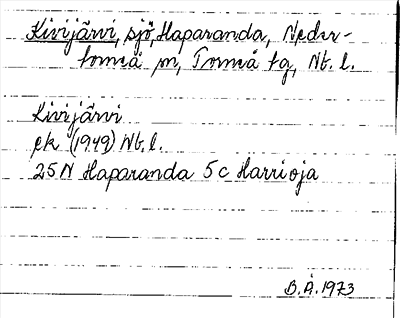 Kivijärvi, sjö, Haparanda, Neder-
torneå sn, Torneå tg, Nb. l.
Kivijärvi
ek (1949) Nb. l.
25N Haparanda 5c Harrioja
B.Å. 1973